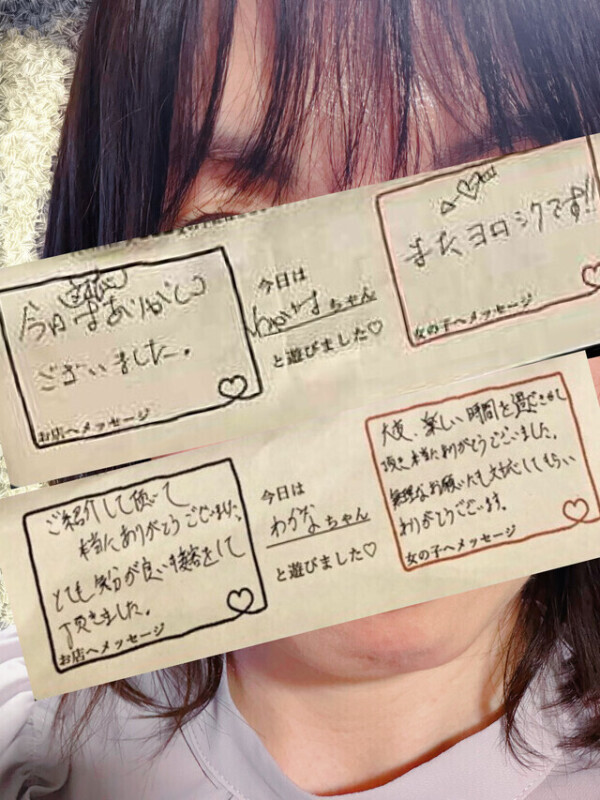 今日はありがとう
ございました。
お店へメッセージ
今日は
わかなちゃん
と遊びました♡
またヨロシクです!!
女の子へメッセージ
ご紹介して頂いて
本当にありがとうございました。
とても気分が良い接客をして
頂きました。
お店へメッセージ
今日は
わかなちゃん
と遊びました♡
大変、楽しい時間を過ごさせて
頂き本当にありがとうございました。
無理なお願いにも対応してもらい
ありがとうございます。
女の子へメッセージ